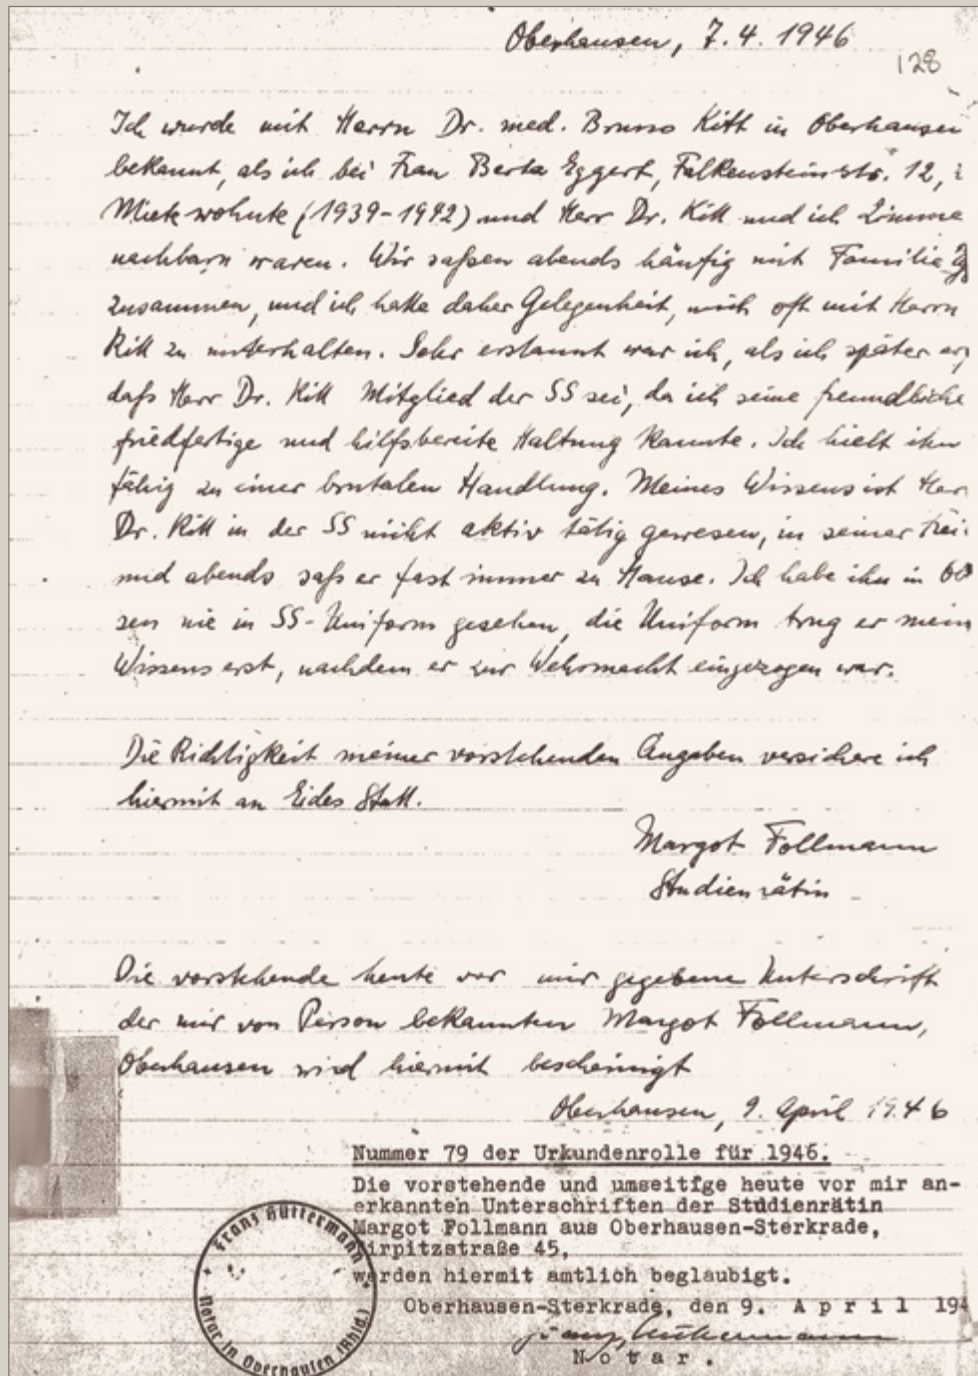 Oberhausen, 7. 4. 1946
128
Ich wurde mit Herrn Dr. med. Bruno Kitt in Oberhausen
bekannt, als ich bei Frau Berta Eggert, Falkensteinstr. 12, i
Miete wohnte (1939-1942) und Herr Dr. Kitt und ich Zimme
nachbarn waren. Wir saßen abends häufig mit Familie
zusammen, und ich hatte daher Gelegenheit, mich oft mit Herrn
Kitt zu unterhalten. Sehr erstaunt war ich, als ich später er
daß Herr Dr. Kitt Mitglied der SS sei, da ich seine freundliche
friedfertige und hilfsbereite Haltung kannte. Ich hielt ihn
fähig zu einer brutalen Handlung. Meines Wissens ist Her
Dr. Kitt in der SS nicht aktiv tätig gewesen, in seiner Frei
und abends saß er fast immer zu Hause. Ich habe ihn in
sen nie in SS-Uniform gesehen, die Uniform trug er mein
Wissens erst, nachdem er zur Wehrmacht eingezogen war.
Die Richtigkeit meiner vorstehenden Angaben versichere ich
hiermit an Eides Statt.
Margot Follmann
Studienrätin
Die vorstehende heute vor mir gegebene Unterschrift
der mir von Person bekannten Margot Follmann,
Oberhausen wird hiermit bescheinigt
Oberhausen, 9. April 1946
Nummer 79 der Urkundenrolle für 1946.
Die vorstehende und umseitige heute vor mir an-
erkannten Unterschriften der Studienrätin
Margot Follmann aus Oberhausen-Sterkrade,
irpitzstraße 45,
werden hiermit amtlich beglaubigt.
Oberhausen-Sterkrade, den 9. April 194
Notar.
Franz Hüttermann
Notar in Oberhausen (Rhld.)